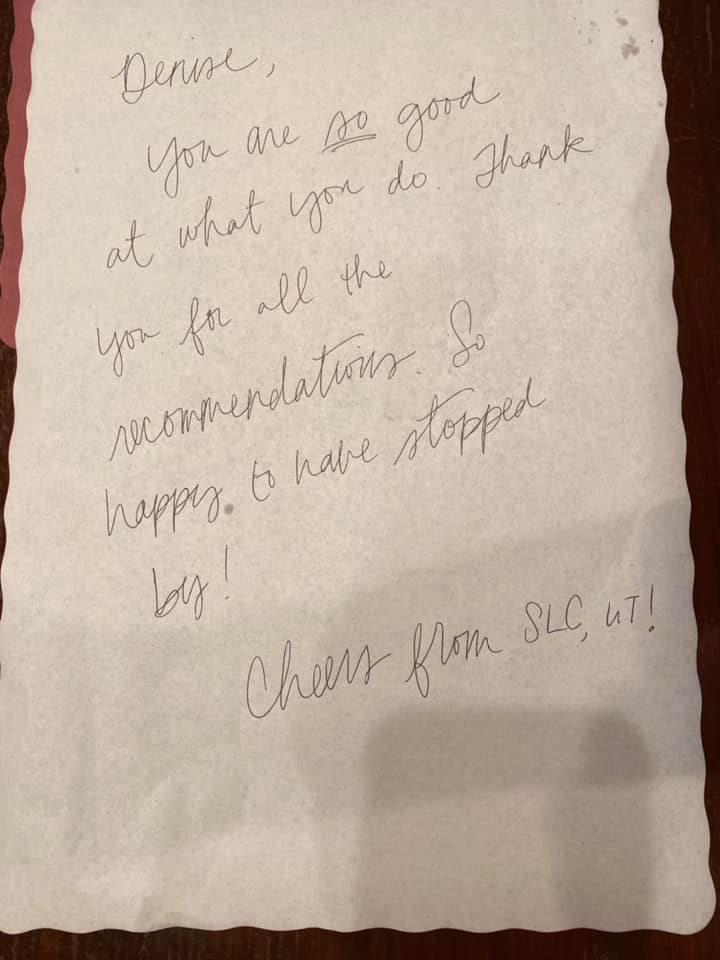 Denise,
You are so good
at what you do. Thank
you for all the
recommendations. So
happy to have stopped
by!
Cheers from SLC, UT!